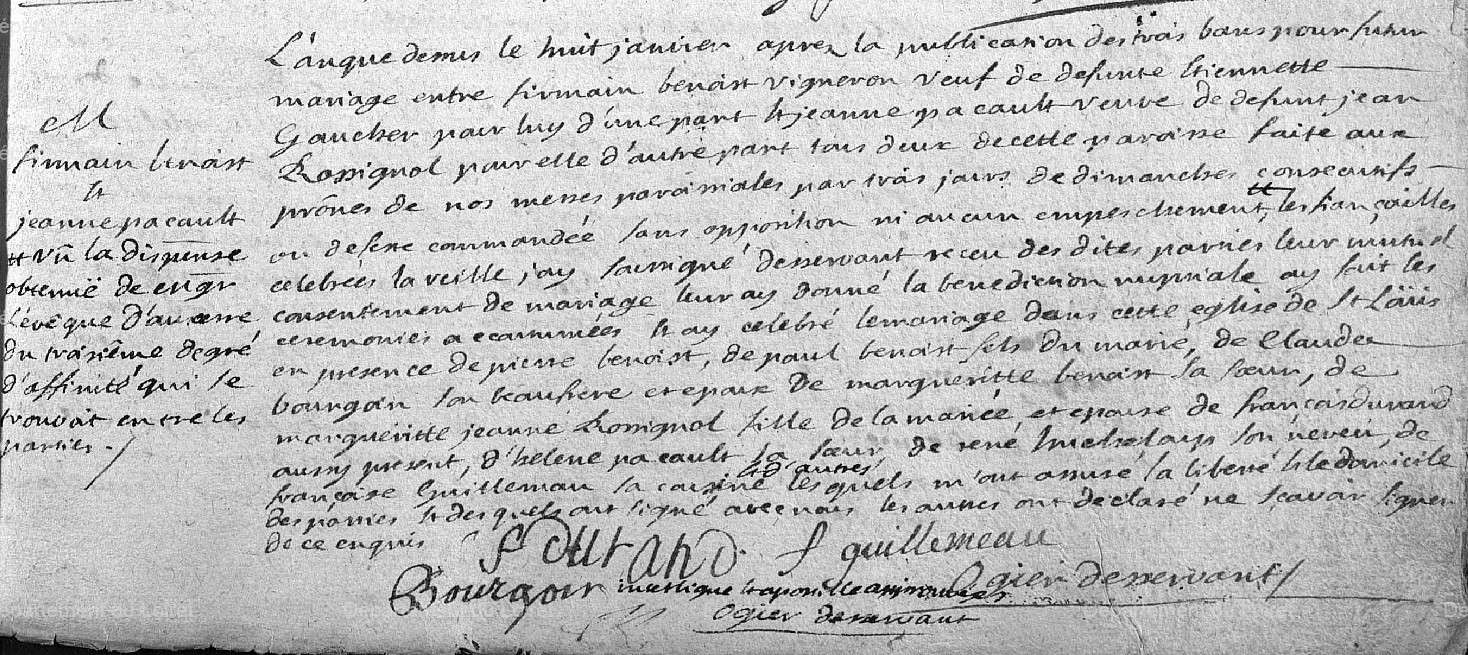 M
firmain benoist
et
jeanne pacault
vû la dispense
obtenuë de
L'évêque d'auxerre
du troisiême degré
d'affinité qui se
trouvoit entre les
parties ./
L'an que dessus le huit janvier apres la publication des trois bans pour futur
mariage entre firmain benoist vigneron veuf de defunte Etiennette
Gaucher pour luy d'une part et jeanne pacault veuve de defunt jean
Rossignol pour elle d'autre part tous deux de cette paroisse faite aux
prônes de nos messes paroissiales par trois jours de dimanches consecutifs
ou de feste commandée sans opposition ni aucun empeschement, les fiançailles
celebrées la veille, j'ay soussigné desservant receu des dites parties leur mutuel
consentement de mariage leur ay donné la benediction nuptiale ay fait les
ceremonies accoutumées et ay celebré le mariage dans cette eglise de St Loüis
en presence de pierre benoist, de paul benoist fils du marié, de Claude
bourgoin son beaufrere et epoux de margueritte benoist sa sœur, de
margueritte jeanne Rossignol fille de la mariée, et epouse de françois durand
aussy present, d'helene pacault sa sœur, de rené son neveu, de
françoise Guillemau sa cousine et d'autres lesquels m'ont assuré la liberté et le domicile
des parties et desquels ont signé avec nous les autres ont déclaré ne sçavoir signer
de ce enquis
f Durand f guillemeau
Bourgoin Ogier desservant
interligne et apostille approuvées
Ogier desservant